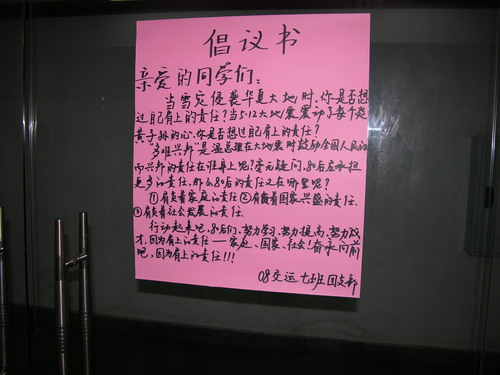 倡议书
亲爱的同学们：
当雪灾侵袭华夏大地时，你是否想
过自己肩上的责任？当5·12大地震震动了每个炎
黄子孙的心，你是否想过自己肩上的责任？
"多难兴邦"是温总理在大地震时鼓励全国人民的
而兴邦的责任在谁身上呢？毫无疑问，80后应承担
更多的责任，那么80后的责任又在哪里呢？
①肩负着家庭的责任②肩负着国家兴盛的责任
③肩负着社会发展的责任
行动起来吧，80后们，努力学习，努力提高，努力成
才，因为肩上的责任——家庭、国家、社会！奋永向前
吧，因为肩上的责任！！！
08交运七班团支部